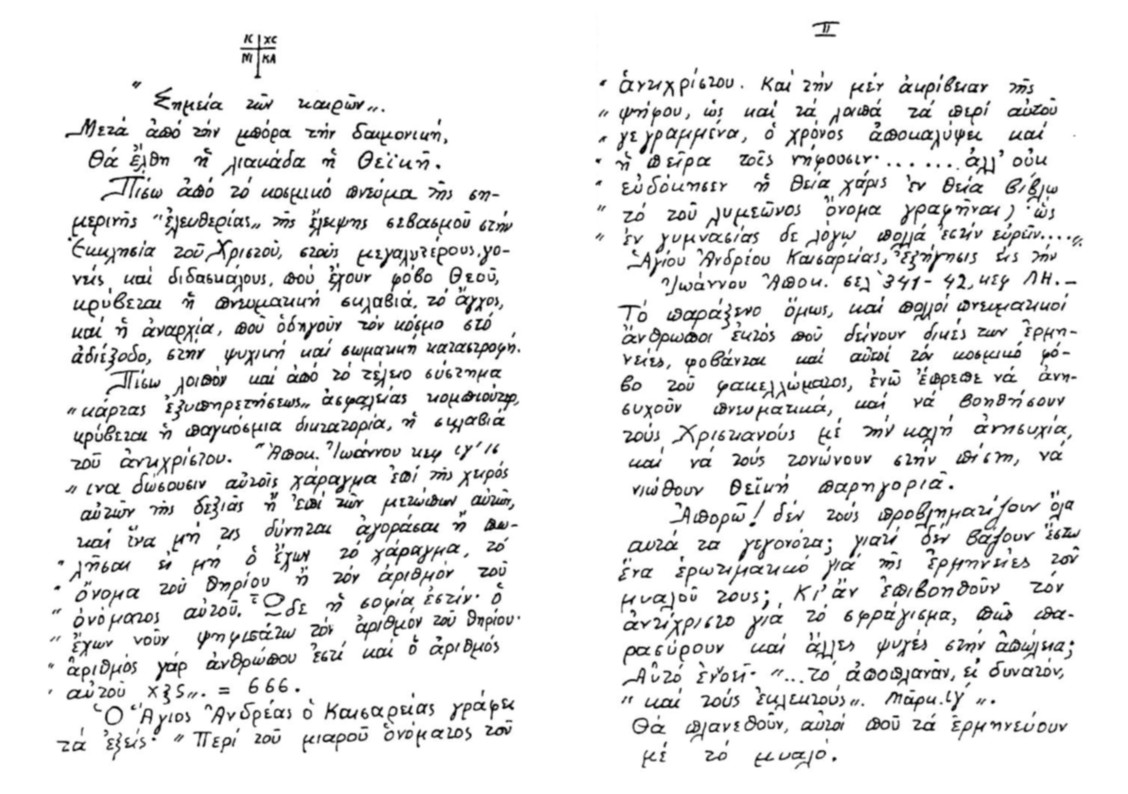 ΙC ΧC
ΝΙ ΚΑ
"Σημεία τῶν καιρῶν„.
Μετά ἀπό τήν μπόρα τήν δαιμονική,
Θά ἔλθη ἡ λιακάδα ἡ Θεϊκή.
Πίσω ἀπό τό κοσμικό πνεῦμα τῆς ση-
μερινῆς "ἐλευθερίας„ τῆς ἔλειψης σεβασμοῦ στήν
Ἐκκλησία τοῦ Χριστοῦ, στούς μεγαλυτέρους, γο-
νεῖς καί διδασκάλους, πού ἔχουν φόβο Θεοῦ,
κρύβεται ἡ πνευματική σκλαβιά, τό ἄγχος,
καί ἡ ἀναρχία, πού ὁδηγοῦν τόν κόσμο στό
ἀδιέξοδο, στήν ψυχική καί σωματική καταστροφή.
Πίσω λοιπόν καί ἀπό τό τέλειο σύστημα
"κάρτας ἐξυπηρετήσεως„ ἀσφαλείας κομπιοῦτερ,
κρύβεται ἡ παγκόσμια δικτατορία, ἡ σκλαβιά
τοῦ ἀντιχρίστου. "Ἀποκ. Ἰωάννου κεφ ιγ' 16
"ινα δώσουσιν αὐτοῖς χάραγμα ἐπί τῆς χειρός
αὐτῶν τῆς δεξιᾶς ἤ ἐπί τῶν μετώπων αὐτῶν,
καί ἵνα μή τις δύνηται ἀγοράσαι ἤ πω-
" λῆσαι εἰ μή ὁ ἔχων τό χάραγμα, τό
" ὄνομα τοῦ θηρίου ἤ τόν ἀριθμόν τοῦ
" ὀνόματος αὐτοῦ. Ὧδε ἡ σοφία ἐστίν· ὁ
" ἔχων νοῦν ψηφισάτω τόν ἀριθμόν τοῦ θηρίου·
" ἀριθμός γάρ ἀνθρώπου ἐστί καί ὁ ἀριθμός
" αὐτοῦ χξς„. = 666.
Ὁ Ἅγιος Ἀνδρέας ὁ Καισαρείας γράφει
τά ἐξεῖς· "Περί τοῦ μιαροῦ ὀνόματος τοῦ
II
" ἀντιχρίστου. Καί τήν μέν ἀκρίβειαν τῆς
" ψήφου, ὡς καί τά λοιπά τά περί αὐτοῦ
" γεγραμμένα, ὁ χρόνος ἀποκαλύψει καί
" ἡ πεῖρα τοῖς νήφουσιν·.......ἀλλ' οὐκ
" εὐδόκησεν ἡ θεία χάρις ἐν θεία βίβλω
" τό τοῦ λυμεῶνος ὄνομα γραφῆναι) ὡς
" ἐν γυμνασίας δε λόγω πολλά ἐστίν εὑρῶν....„.
Ἁγίου Ἀνδρέου Καισαρείας, Ἐξήγησις εἰς τήν
Ἰωάννου Ἀποκ. σελ 341-42, κεφ ΛΗ.-
Τό παράξενο ὅμως, καί πολλοί πνευματικοί
ἄνθρωποι ἐκτός πού δίνουν δικές των ἑρμη-
νεῖες, φοβάνται καί αὐτοί τόν κοσμικό φό-
βο τοῦ φακελλώματος, ἐνῶ ἔπρεπε νά ἀνη-
συχοῦν πνευματικά, καί νά βοηθήσουν
τούς Χριστιανούς μέ τήν καλή ἀνησυχία,
καί νά τούς τονώνουν στήν πίστη, νά
νιώθουν θεϊκή παρηγοριά.
Ἀπορῶ! δέν τούς προβληματίζουν ὅλα
αυτά τα γεγονότα; γιατί δέν βάζουν ἔστω
ἕνα ἐρωτιματικό γιά τῆς ἑρμηνεῖες τοῦ
μυαλοῦ τους; Κι' ἄν ἐπιβοηθοῦν τόν
ἀντίχριστο γιά τό σφράγισμα, πῶς πα-
ρασύρουν καί ἄλλες ψυχές στήν ἀπώλεια;
Αὐτό ἐνοεῖ· "...τό ἀποπλανᾶν, εἰ δυνατόν,
" καί τούς ἐκλεκτούς„. Μάρκ. ιγ' „.
Θά πλανεθοῦν, αὐτοί πού τά ἑρμηνεύουν
μέ τό μυαλό.